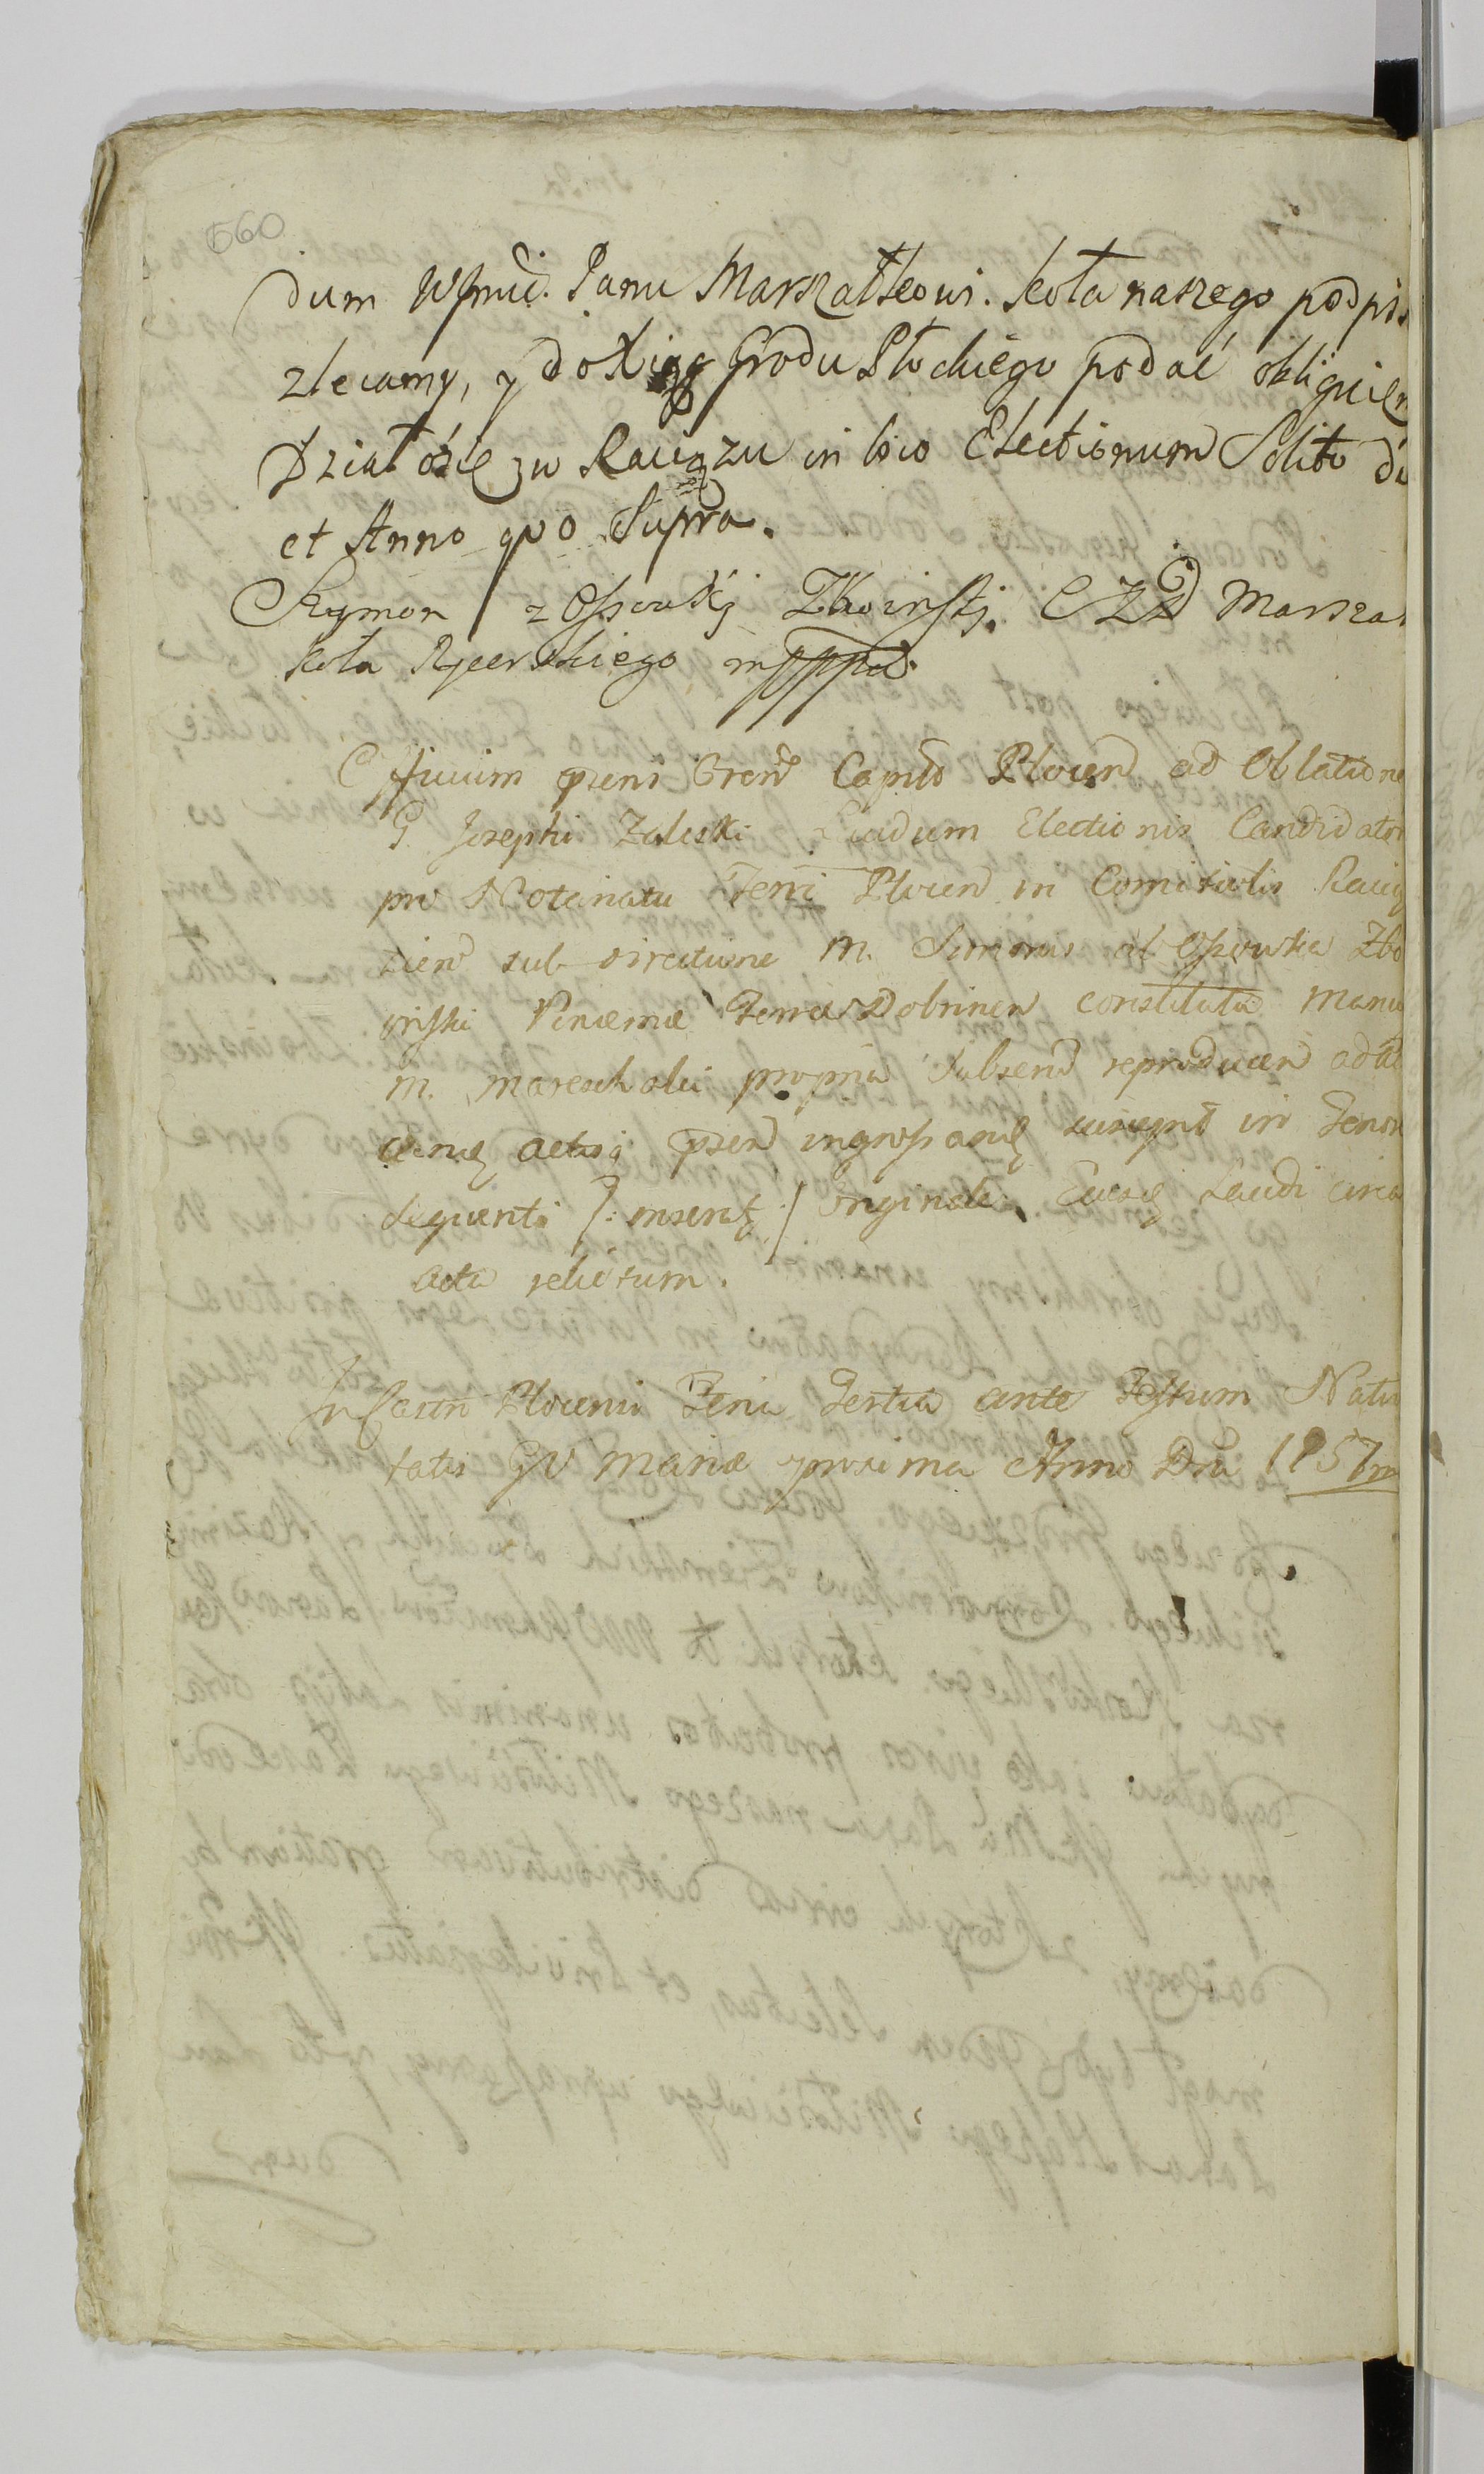 560
dum WJmci. Panu Marszałkowi. koła naszego podpis
zlecamy, y do Xiąg Grodu Płockiego podać obliguiem
Działosię w Raciązu in loco Electionum Solito di
et Anno quo Supra.
Szymon z Ossowki Zboinski. C Z D Marszał
koła Rycerskiego mppp
Officium psens Capit Plocen ad Oblatione
G. Josephi Zaleski Laudum Electionis Candidator
pro Notariatu Terri Plocen in Comitiolis Raciąz
zien sub directione M. Simonis ab Ossowka Zbo
inski Pincernae Terrae Dobrinen constitutis manu
M. mareschalci propria Subscrip reproducen ad
actis psen ingrossand suscepit in Tenore
sequenti /: inserat :/ Originale Laudi circa
acta relictum.
In Castri Plocensi Feria Tertia ante Festum Nativi
tatis BV Mariae proxima Anno Dni 1757mo